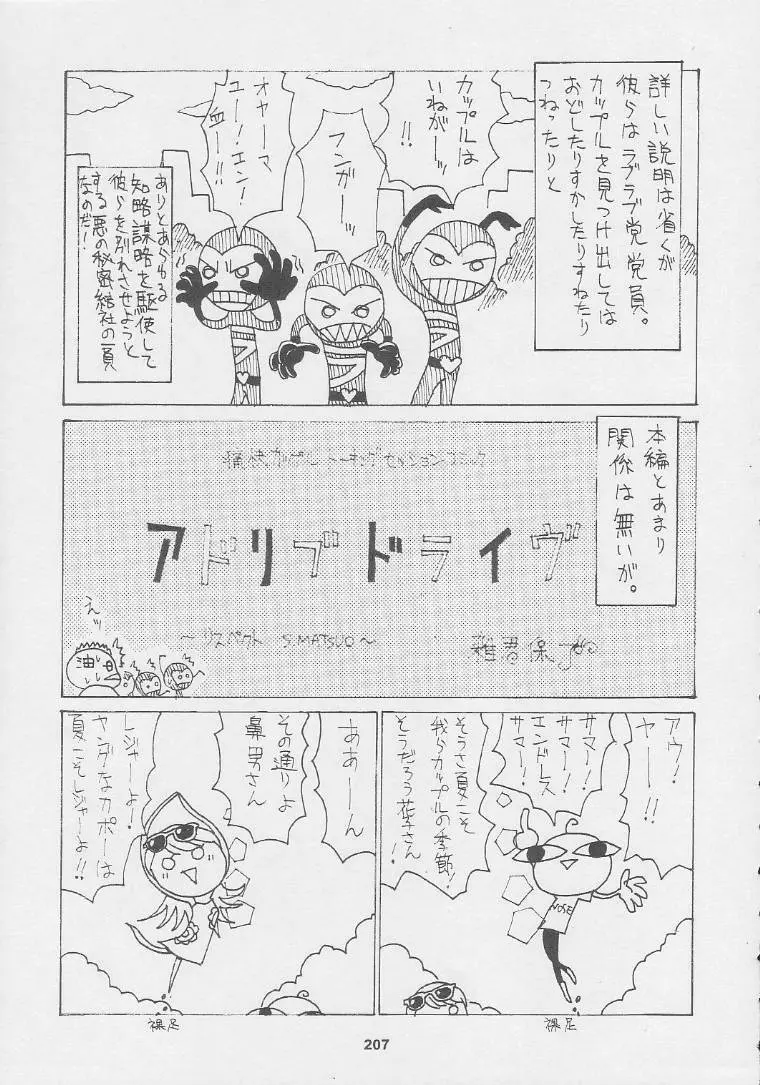 詳しい説明は省くが
彼らはラブラブ党党員。
カップルを見つけ出しては
おどしたりすかしたりすねたり
つねったりと
カップルは
いねがーッ
!!
フンガーッ
オヤーマ
ユー!エン!
ー!!
ありとあらゆる
知略謀略を駆使して
彼らを別れさせようと
する悪の秘密結社の一員
なのだ!
本編とあまり
関係は無いが。
痛快カップルトーキングセッションコミック
アドリブドライヴ
〜リスペクト S.MATSUO〜
えッ
油
アウ!
ヤー!!
サマー!
サマー!
エンドレス
サマー!
そうさ夏こそ
我らカップルの季節!
そうだろう花子さん!
NOSE
裸足
ああーん
その通りよ
鼻男さん
レジャーよー!
ヤングなカポーは
夏こそレジャーよ!!
裸足
207